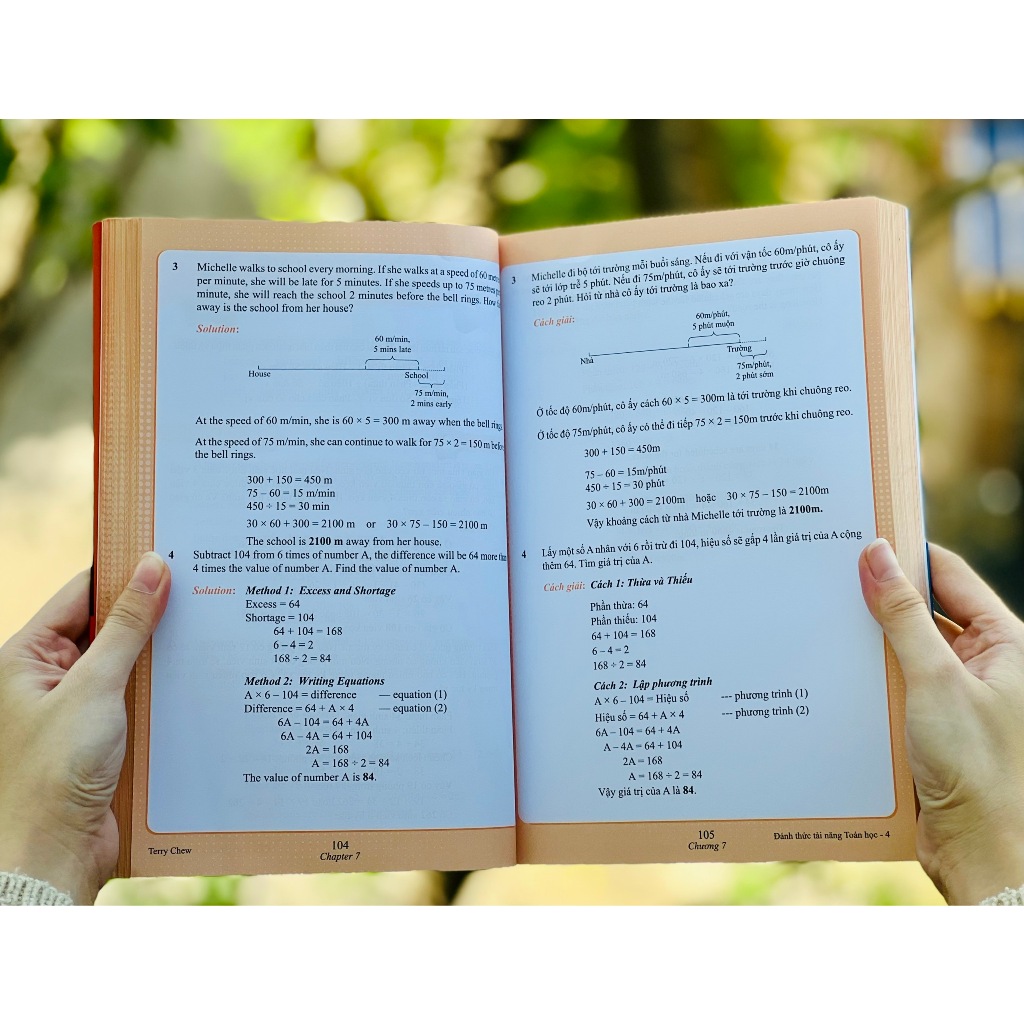 3 Michelle walks to school every morning. If she walks at a speed of 60
per minute, she will be late for 5 minutes. If she speeds up to 75 metres
minute, she will reach the school 2 minutes before the bell rings. How
away is the school from her house?
Solution:
60 m/min,
5 mins late
House School
75 m/min,
2 mins early
At the speed of 60 m/min, she is 60 × 5 = 300 m away when the bell
At the speed of 75 m/min, she can continue to walk for 75 × 2 = 150 m
the bell rings.
300 + 150 = 450 m
75 – 60 = 15 m/min
450 ÷ 15 = 30 min
30 × 60 + 300 = 2100 m or 30 × 75 – 150 = 2100 m
The school is 2100 m away from her house.
4 Subtract 104 from 6 times of number A, the difference will be 64 more
4 times the value of number A. Find the value of number A.
Solution: Method 1: Excess and Shortage
Excess = 64
Shortage = 104
64 + 104 = 168
6 – 4 = 2
168 ÷ 2 = 84
Method 2: Writing Equations
A × 6 – 104 = difference — equation (1)
Difference = 64 + A × 4 — equation (2)
6A – 104 = 64 + 4A
6A – 4A = 64 + 104
2A = 168
A = 168 ÷ 2 = 84
The value of number A is 84.
Terry Chew
104
Chapter 7
3 Michelle đi bộ tới trường mỗi buổi sáng. Nếu đi với vận tốc 60m/phút, cô ấy
sẽ tới lớp trễ 5 phút. Nếu đi 75m/phút, cô ấy sẽ tới trường trước giờ chuông
reo 2 phút. Hỏi từ nhà cô ấy tới trường là bao xa?
Cách giải:
60m/phút,
5 phút muộn
Nhà Trường
75m/phút,
2 phút sớm
Ở tốc độ 60m/phút, cô ấy cách 60 × 5 = 300m là tới trường khi chuông reo.
Ở tốc độ 75m/phút, cô ấy có thể đi tiếp 75 × 2 = 150m trước khi chuông reo.
300 + 150 = 450m
75 – 60 = 15m/phút
450 ÷ 15 = 30 phút
30 × 60 + 300 = 2100m hoặc 30 × 75 – 150 = 2100m
Vậy khoảng cách từ nhà Michelle tới trường là 2100m.
4 Lấy một số A nhân với 6 rồi trừ đi 104, hiệu số sẽ gấp 4 lần giá trị của A cộng
thêm 64. Tìm giá trị của A.
Cách giải: Cách 1: Thừa và Thiếu
Phần thừa: 64
Phần thiếu: 104
64 + 104 = 168
6 – 4 = 2
168 ÷ 2 = 84
Cách 2: Lập phương trình
A × 6 – 104 = Hiệu số --- phương trình (1)
Hiệu số = 64 + A × 4 --- phương trình (2)
6A – 104 = 64 + 4A
A – 4A = 64 + 104
2A = 168
A = 168 ÷ 2 = 84
Vậy giá trị của A là 84.
105
Chương 7
Đánh thức tài năng Toán học - 4